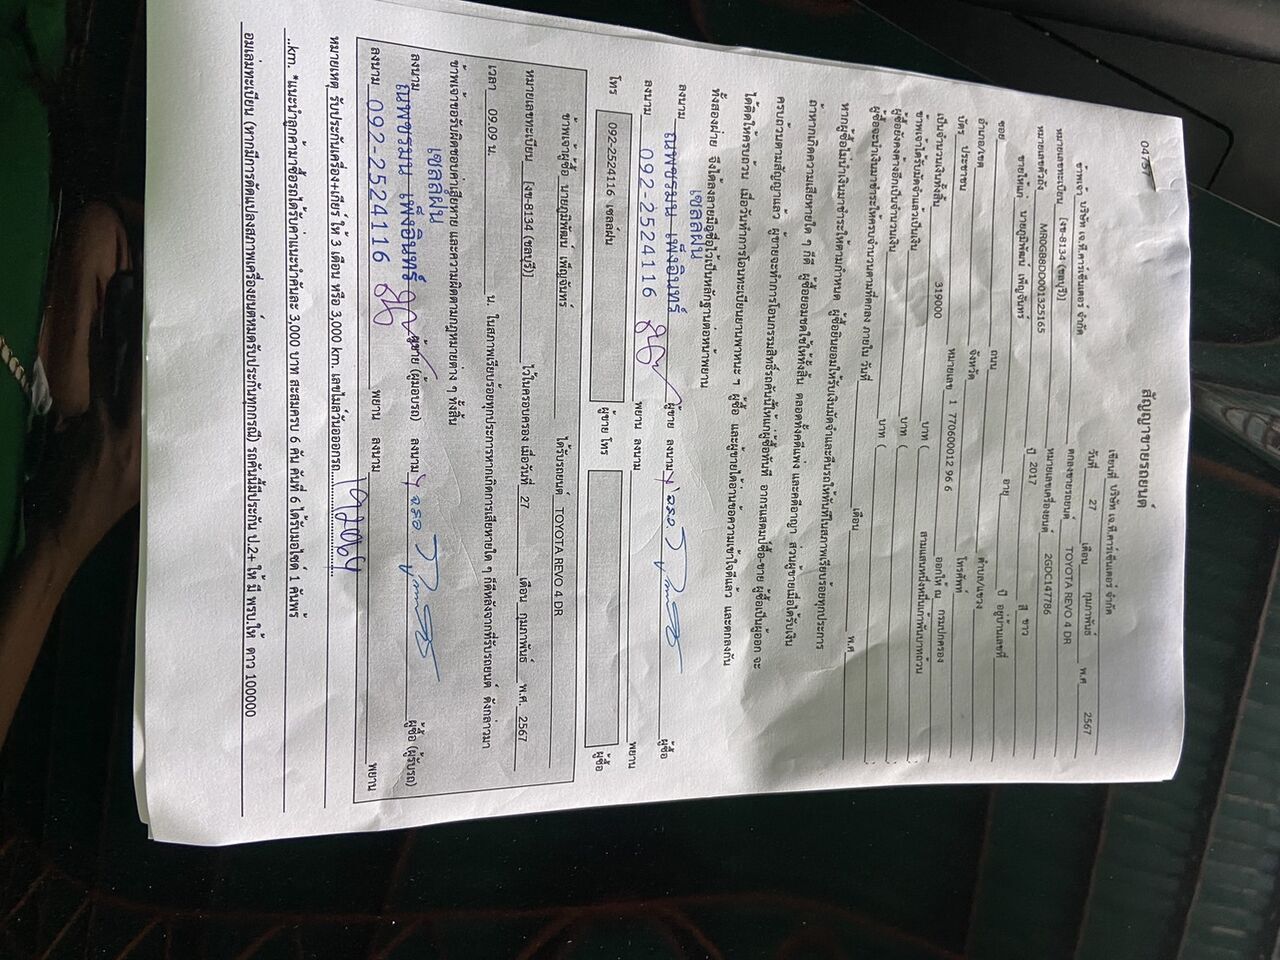 สัญญาขายรถยนต์
เขียนที่ บริษัท เจ.ที.คาร์เซ็นเตอร์ จำกัด
วันที่ 27 เดือน กุมภาพันธ์ พ.ศ 2567
ข้าพเจ้า บริษัท เจ.ที.คาร์เซ็นเตอร์ จำกัด ตกลงขายรถยนต์ TOYOTA REVO 4 DR
หมายเลขทะเบียน [งข-8134 (ชลบุรี)] หมายเลขเครื่องยนต์ 2GDC147786
หมายเลขตัวถัง MR0GB8DD001325165 ปี 2017 สี ขาว
ขายให้แก่ นายภูมิพัฒน์ เพ็ญจันทร์ อายุ ปี อยู่บ้านเลขที่
ซอย ถนน ตำบล/แขวง
อำเภอ/เขต จังหวัด โทรศัพท์
บัตร ประชาชน หมายเลข 1 770600012 96 6 ออกให้ ณ กรมปกครอง
เป็นจำนวนเงินทั้งสิ้น 319000 บาท ( สามแสนหนึ่งหมื่นเก้าพันบาทถ้วน )
ข้าพเจ้าได้รับมัดจำแล้วเป็นเงิน บาท ( )
ผู้ซื้อยังคงค้างอีกเป็นจำนวนเงิน บาท ( )
ผู้ซื้อจะนำเงินมาชำระให้ครบจำนวนตามที่ตกลง ภายใน วันที่ เดือน พ.ศ
หากผู้ซื้อไม่นำเงินมาชำระให้ตามกำหนด ผู้ซื้อยินยอมให้รับเงินมัดจำและคืนรถให้ทันทีในสภาพเรียบร้อยทุกประการ
ถ้าหากเกิดความเสียหายใด ๆ ก็ดี ผู้ซื้อยอมชดใช้ให้ทั้งสิ้น ตลอดทั้งคดีแพ่ง และคดีอาญา ส่วนผู้ขายเมื่อได้รับเงิน
ครบถ้วนตามสัญญาแล้ว ผู้ขายจะทำการโอนกรรมสิทธิ์รถคันนี้ให้แก่ผู้ซื้อทันที อากรแสตมป์ซื้อ-ขาย ผู้ซื้อเป็นผู้ออก จะ
ได้ติดให้ครบถ้วน เมื่อวันทำการโอนทะเบียนยานพาหนะ ๆ ผู้ซื้อ และผู้ขายได้อ่านข้อความเข้าใจดีแล้ว และตกลงกัน
ทั้งสองฝ่าย จึงได้ลงลายมือชื่อไว้เป็นหลักฐานต่อหน้าพยาน
เซลล์ฝน
ลงนาม ณพชรมน เพ็งอินทร์ ผู้ขาย ลงนาม ผู้ซื้อ
ลงนาม 092-2524116 พยาน ลงนาม พยาน
โทร 092-2524116 เซลล์ฝน ผู้ขาย โทร ผู้ซื้อ
ข้าพเจ้าผู้ซื้อ นายภูมิพัฒน์ เพ็ญจันทร์ ได้รับรถยนต์ TOYOTA REVO 4 DR
หมายเลขทะเบียน [งข-8134 (ชลบุรี)] ไว้ในครอบครอง เมื่อวันที่ 27 เดือน กุมภาพันธ์ พ.ศ. 2567
เวลา 09.09 น. น. ในสภาพเรียบร้อยทุกประการหากเกิดการเสียหายใด ๆ ก็ดีหลังจากที่รับรถยนต์ ดังกล่าวมา
ข้าพเจ้าขอรับผิดชอบค่าเสียหาย และความผิดตามกฎหมายต่าง ๆ ทั้งสิ้น
เซลล์ฝน
ลงนาม ณพชรมน เพ็งอินทร์ ผู้ขาย (ผู้มอบรถ) ลงนาม ผู้ซื้อ (ผู้รับรถ)
ลงนาม 092-2524116 พยาน ลงนาม พยาน
หมายเหตุ รับประกันเครื่อง+เกียร์ ให้ 3 เดือน หรือ 3,000 km. เลขไมล์วันออกรถ
..km. *แนะนำลูกค้ามาซื้อรถได้รับค่าแนะนำคันละ 3,000 บาท สะสมครบ 6 คัน คันที่ 6 ได้รับมอไซค์ 1 คันพร้
อมเล่มทะเบียน (หากมีการดัดแปลงสภาพเครื่องยนต์หมดรับประกันทุกกรณี) รถคันนี้มีประกัน ป.2+ ให้ มี พรบ.ให้ ดาว 100000